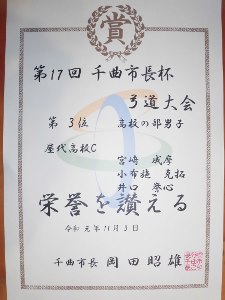 賞
第17回 千曲市長杯
弓道大会
第3位 高校の部男子
屋代高校C
宮﨑 成摩
小布施 克拓
井口 崇心
栄誉を讃える
令和元年11月3日
千曲市長 岡田昭雄